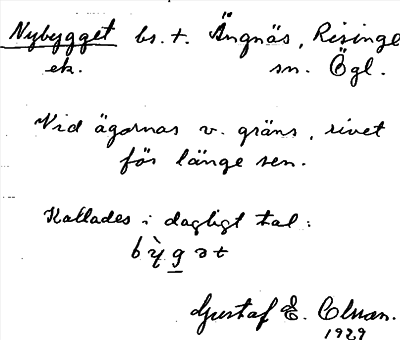 Nybygget bs. t. Ängnäs, Risinge
ek. sn. Ögl.
Vid ägornas v. gräns, rivet
för länge sen.
Kallades i dagligt tal:
Gustaf E.
1929